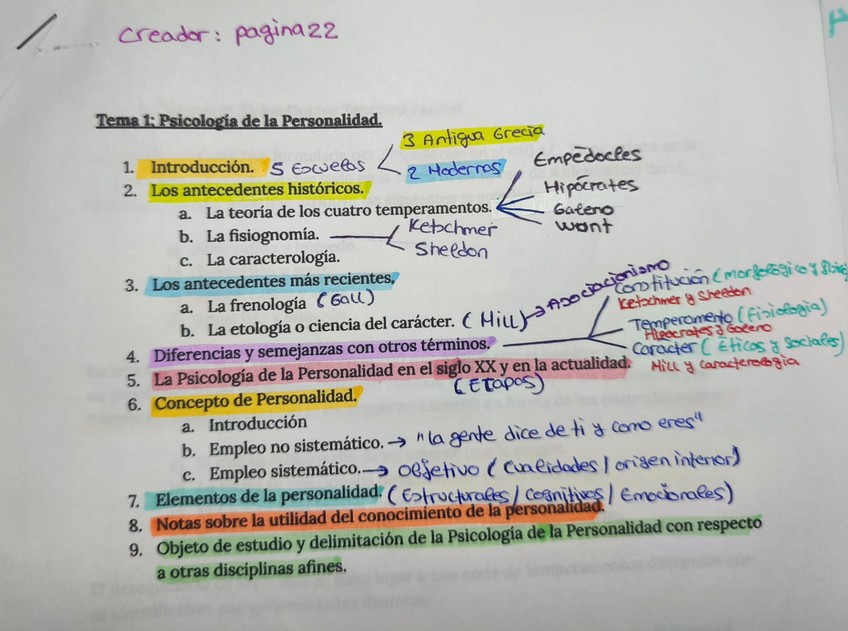 Creador: pagina 22
Tema 1: Psicología de la Personalidad.
3 Antigua Grecia
1. Introducción. 5 Escuelas
2 Modernas
Empédocles
2. Los antecedentes históricos.
Hipócrates
a. La teoría de los cuatro temperamentos.
Galeno
Want
b. La fisiognomía.
Ketschmer
Sheldon
c. La caracterología.
3. Los antecedentes más recientes,
Asociacionismo
Constitución (morfológico y
Ketschmer y Sheldon
a. La frenología (Gall)
b. La etología o ciencia del carácter. (Mill)
Temperamento (Fisiología)
Hipocrates y Galeno
4. Diferencias y semejanzas con otros términos.
Caracter (Éticos y sociales)
Mill y caracterología
5. La Psicología de la Personalidad en el siglo XX y en la actualidad.
(Etapas)
6. Concepto de Personalidad.
a. Introducción
b. Empleo no sistemático. → "la gente dice de ti y como eres"
c. Empleo sistemático. → Objetivo (Cualidades / origen interior)
7. Elementos de la personalidad. (Estructurales / Cognitivos / Emocionales)
8. Notas sobre la utilidad del conocimiento de la personalidad.
9. Objeto de estudio y delimitación de la Psicología de la Personalidad con respecto
a otras disciplinas afines.